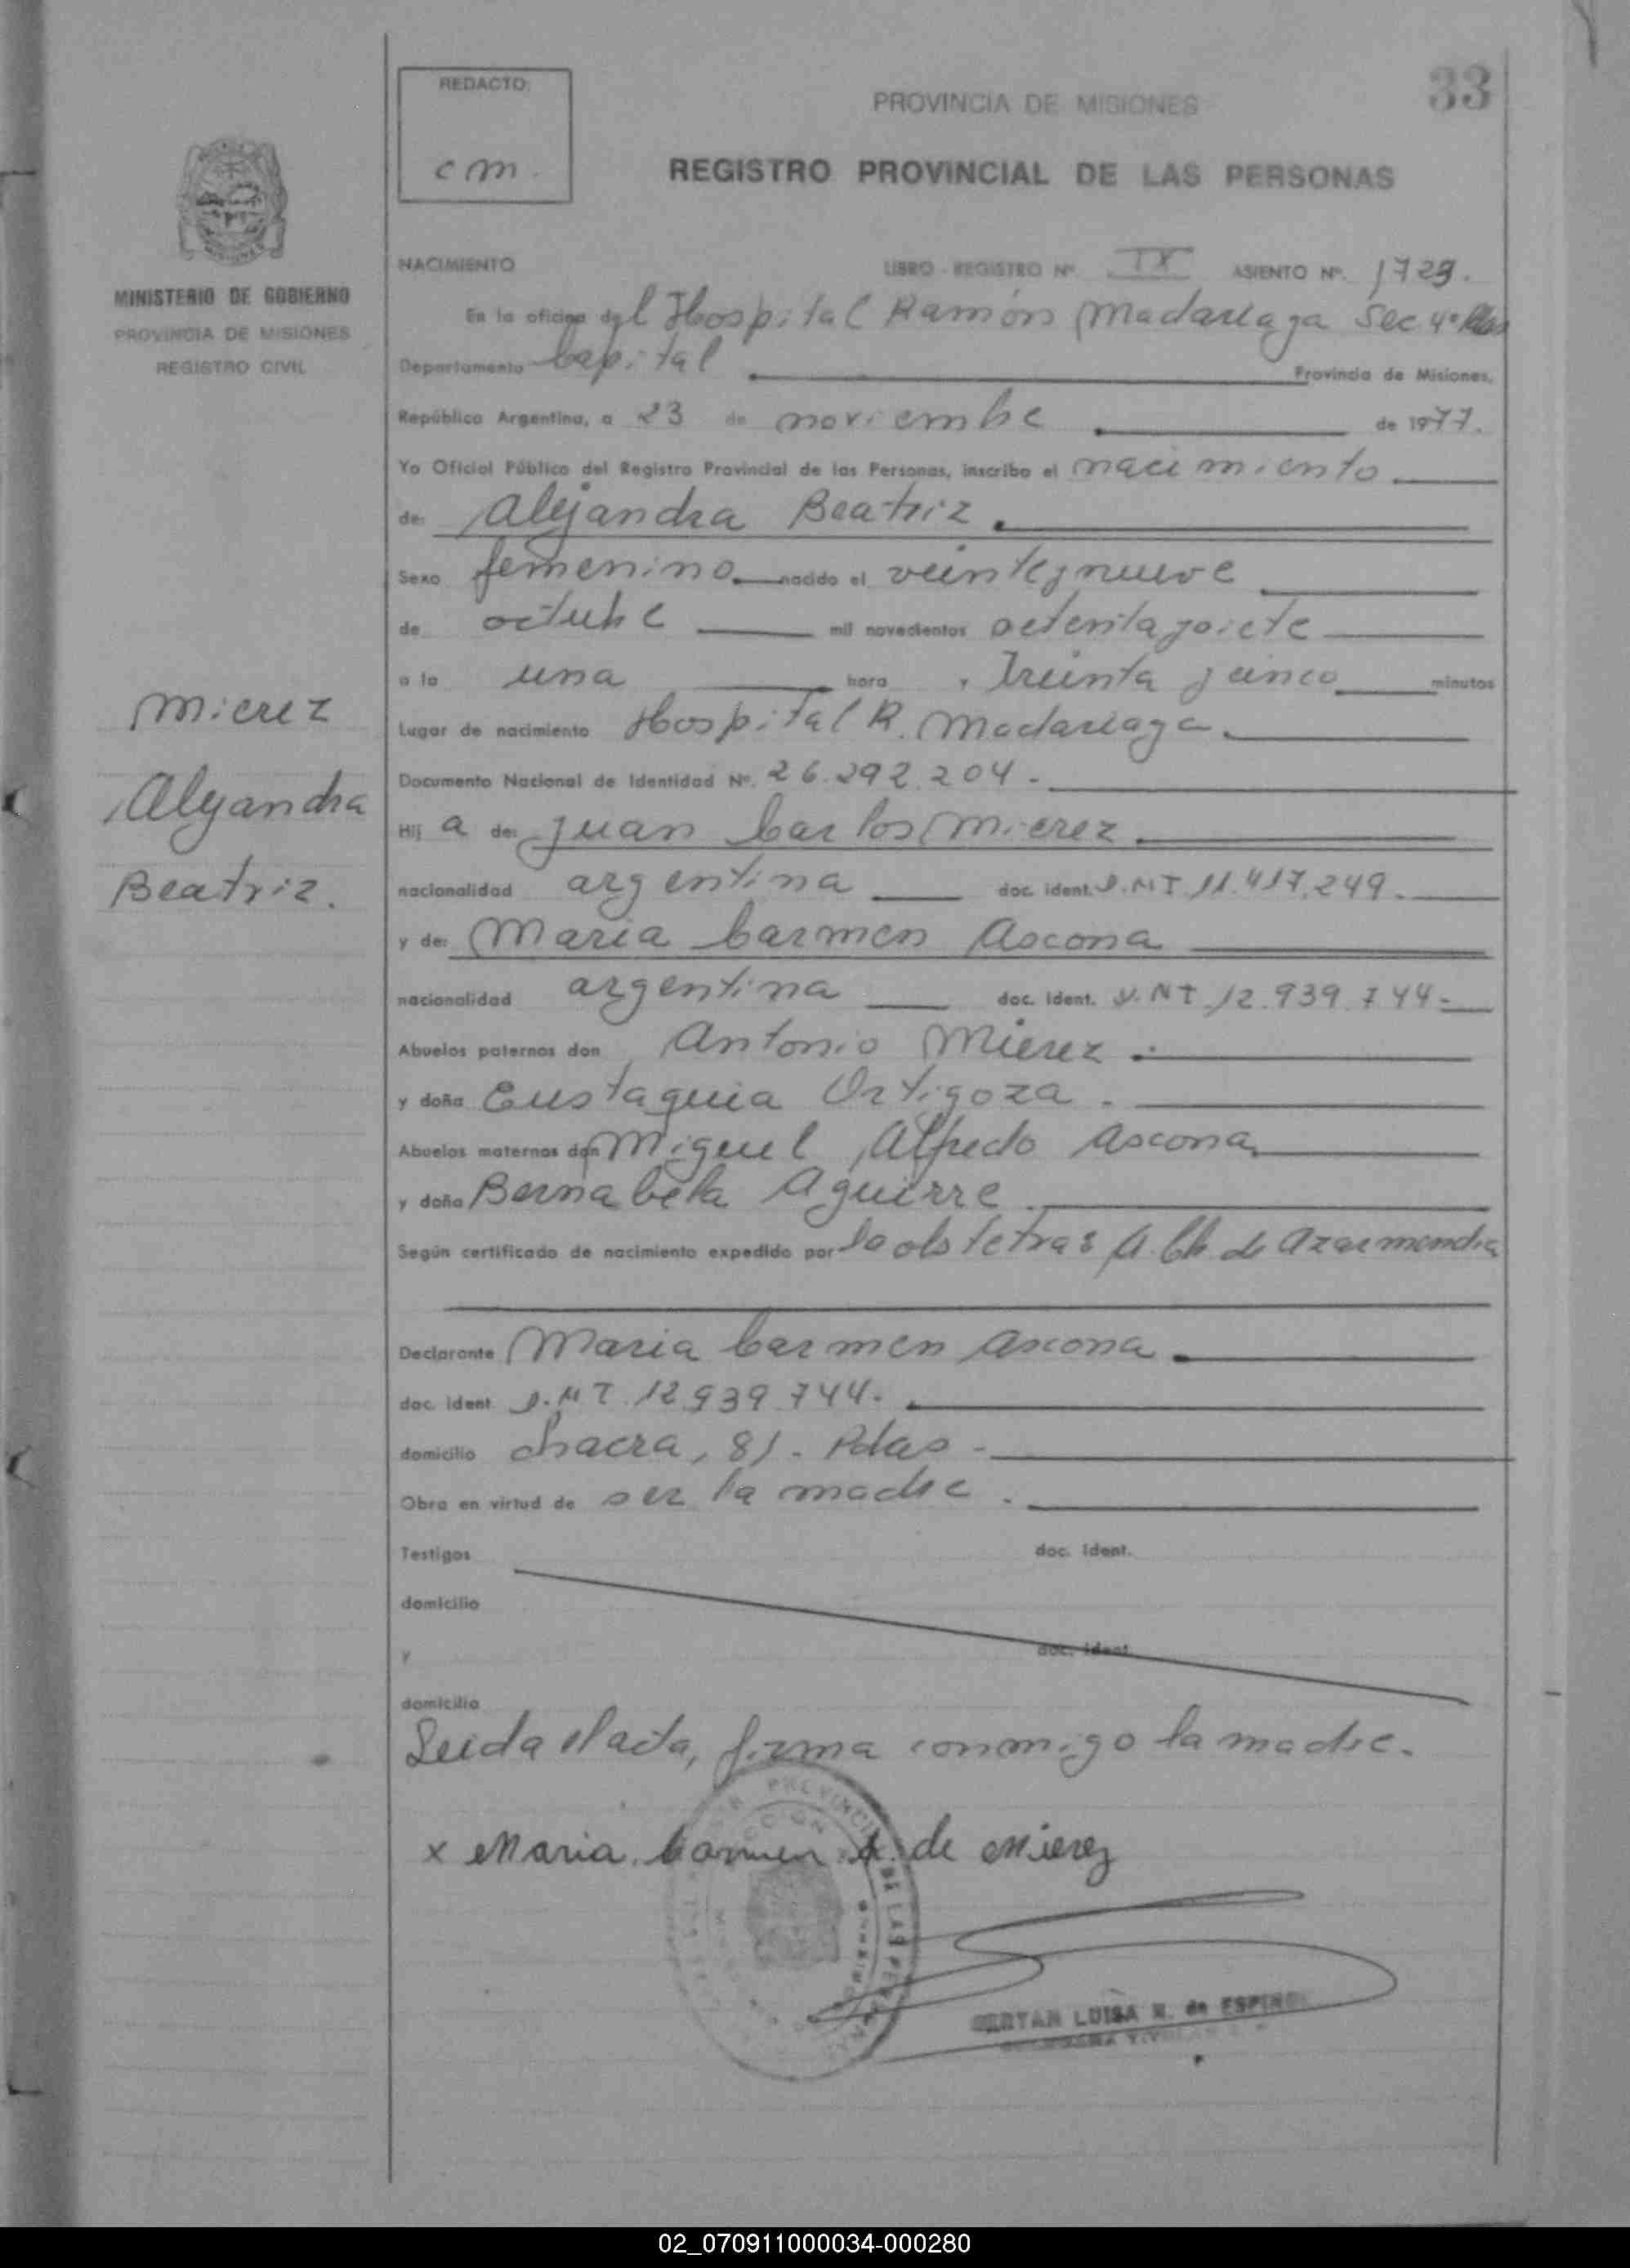 REDACTO:
cm.
33
PROVINCIA DE MISIONES
REGISTRO PROVINCIAL DE LAS PERSONAS
MINISTERIO DE GOBIERNO
PROVINCIA DE MISIONES
REGISTRO CIVIL
NACIMIENTO LIBRO - REGISTRO Nº. IX ASIENTO Nº. 1729.
En la oficina del Hospital Ramón Madariaga Sec. 4ª Pdas
Departamento Capital Provincia de Misiones,
República Argentina, a 23 de noviembre de 1977.
Yo Oficial Público del Registro Provincial de las Personas, inscribo el nacimiento
de: Alejandra Beatriz.
Sexo femenino nacido el veintejnueve
de octubre mil novecientos setentajsiete
a la una hora, treinta jcinco minutos
Lugar de nacimiento Hospital R. Madariaga.
Documento Nacional de Identidad Nº. 26.292.204.-
Hij a de: Juan Carlos Mierez
nacionalidad argentina doc. ident. D.NI 11.417.249.
y de: Maria Carmen Ascona
nacionalidad argentina doc. ident. D.NI 12.939.744-
Abuelos paternos don Antonio Mierez.
y doña Eustaquia Ortigoza.
Abuelos maternos don Miguel Alfredo Ascona
y doña Bernabela Aguirre
Según certificado de nacimiento expedido por la obstetras A. Ch. de Azarmendia
Declarante Maria Carmen Ascona
doc. ident. D.NI. 12.939.744.
domicilio chacra, 81. Pdas.
Obra en virtud de ser la madre.
Testigos doc. ident.
domicilio
y doc. ident.
domicilio
Leida el acta, firma conmigo la madre.
x Maria Carmen A. de Mierez
LUISA N. de ESPINOLA
Mierez
Alejandra
Beatriz.
02_070911000034-000280